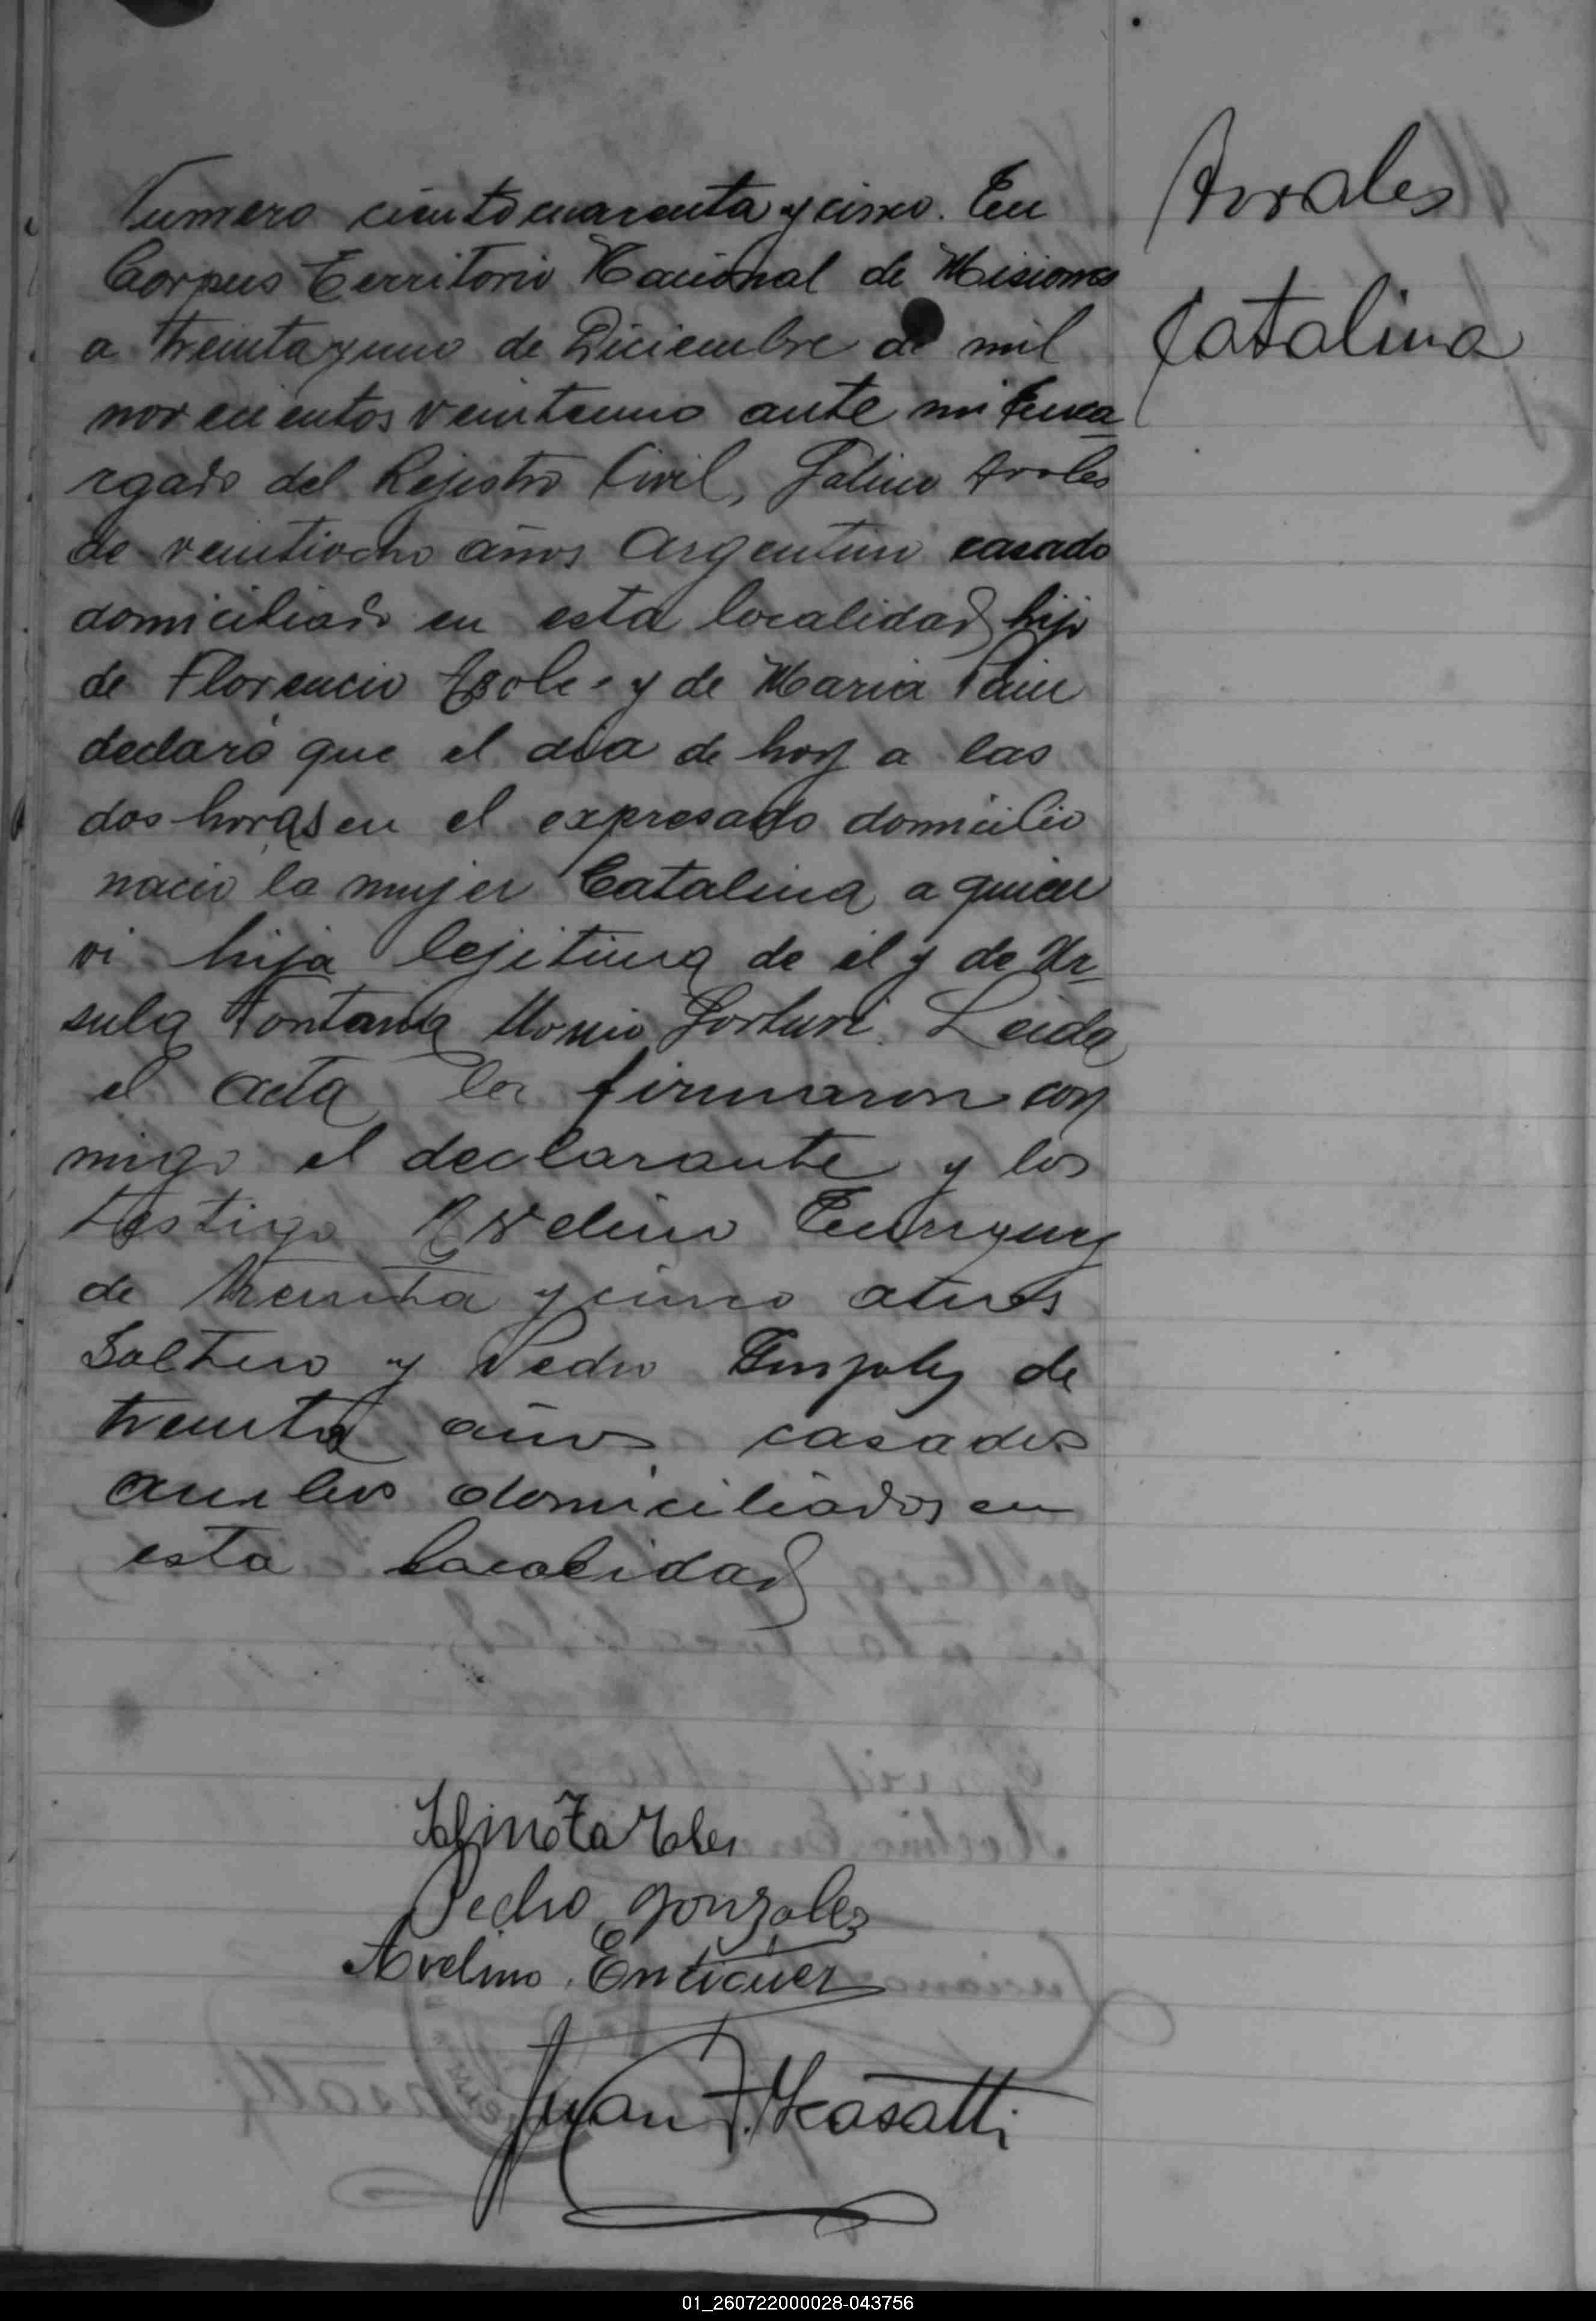 Arrales
Catalina
Numero ciento cuarenta y cinco. En
Corpus Territorio Nacional de Misiones
a treinta y uno de Diciembre de mil
novecientos veintiuno ante mi Enca
rgado del Rejistro Civil,
de veintiocho años Argentino casado
domiciliado en esta localidad hijo
de Florencio y de Maria
declaró que el dia de hoy a las
dos horas en el expresado domicilio
nacio la mujer Catalina a quien
vi hija lejitima de el y de Ur
sula Fontana Leida
el acta la firmaron con
migo el declarante y los
testigo Avelino Enriquez
de treinta y cinco años
Soltero y Pedro Gonzalez de
treinta años casados
ambos domiciliados en
esta localidad
Pedro Gonzalez
Avelino Enricuez
Juan F. Casatti
01_260722000028-043756